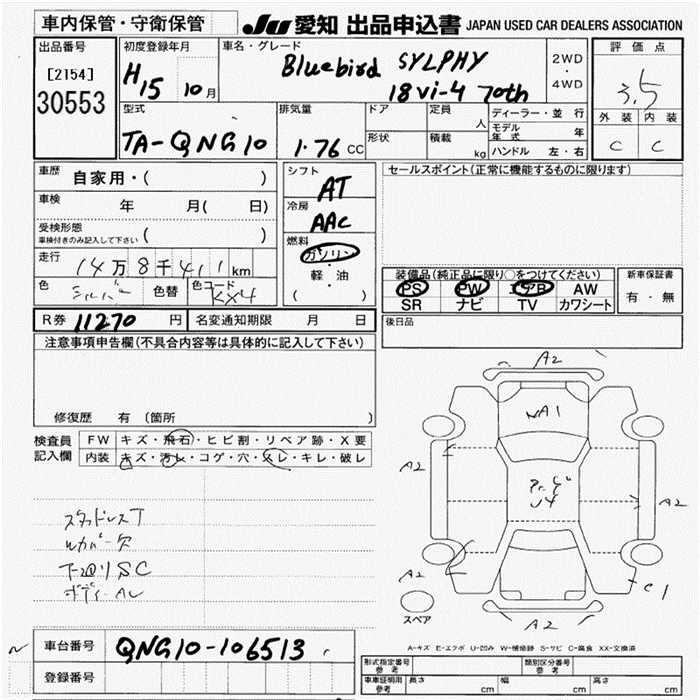 車内保管・守衛保管
JU 愛知 出品申込書 JAPAN USED CAR DEALERS ASSOCIATION
出品番号
[2154]
30553
初度登録年月
H15 10月
車名・グレード
Bluebird SYLPHY
18Vi-4 70th
2WD
・
4WD
評価点
3.5
外装 内装
C C
型式
TA-QNG10
排気量
1.76 CC
ドア
形状
定員
人
積載
kg
ディーラー・並行
モデル年式 年
ハンドル 左・右
車歴
自家用・( )
車検
年 月( 日)
受検形態
車検付きのみ記入して下さい ( )
走行
14万8千411km
色
シルバー
色替
色コード
KX4
シフト
AT
冷房
AAC
燃料
ガソリン
・
軽・油
( )
セールスポイント(正常に機能するものに限ります)
装備品(純正品に限り○をつけてください)
PS PW エアB AW
SR ナビ TV カワシート
新車保証書
有・無
R券 11270 円
名変通知期限 月 日
後日品
注意事項申告欄(不具合内容等は具体的に記入して下さい)
修復歴 有 〔箇所
検査員
記入欄
FW キズ・飛石・ヒビ割・リペア跡・X要
内装 キズ・汚レ・コゲ・穴・スレ・キレ・破レ
スタッドレスT
下廻りSC
A2
A2
A2
A2
A2
C1
スペア
A-キズ E-エクボ U-凹み W-補修跡 S-サビ C-腐食 XX-交換済
車台番号
QNG10-106513
登録番号
形式指定番号
参考
類別区分番号
参考
車車証明用
参考
長さ cm
幅 cm
高さ cm